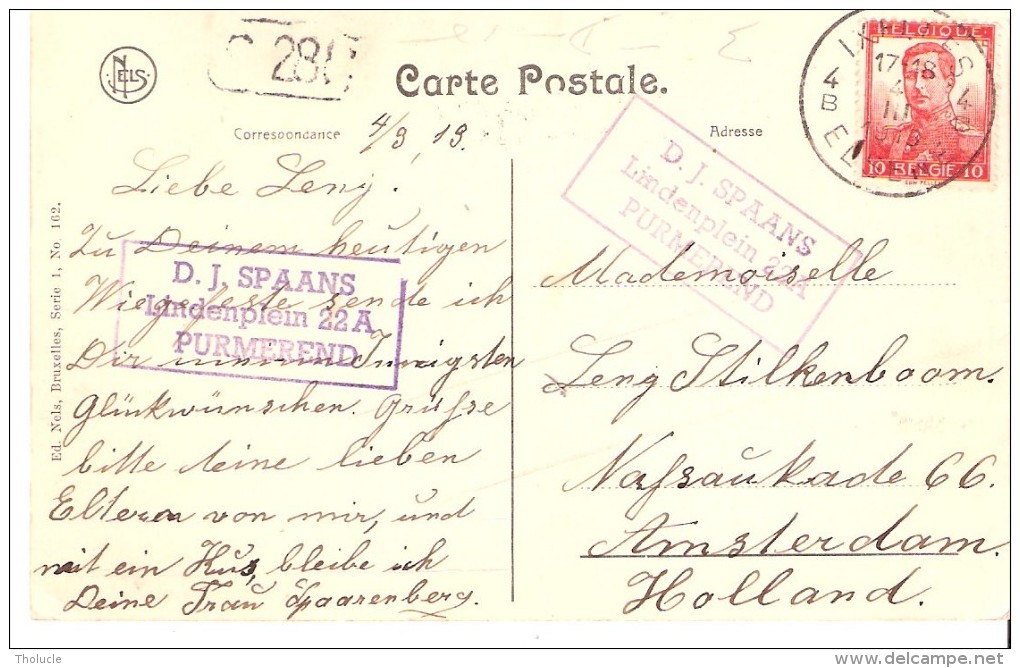 NELS
C 280
Carte Postale.
Correspondance
Adresse
4/3, 13.
Liebe Leny.
Zu Deinem heutigen
Wiegefeste sende ich
Dir meine Innigsten
Glückwünschen. Grüsse
bitte deine lieben
Eltern von mir, und
mit ein Kus, bleibe ich
Deine Frau Spaarenberg.
D. J. SPAANS
Lindenplein 22 A
PURMEREND
D. J. SPAANS
Lindenplein 22A
PURMEREND
BELGIQUE
10 BELGIË 10
17-18
4
III
4 B
Mademoiselle
Leny Stilkenboom.
Nassaukade 66.
Amsterdam.
Holland.
Ed. Nels, Bruxelles, Serie 1, No. 162.
Tholucle
delcampe.net